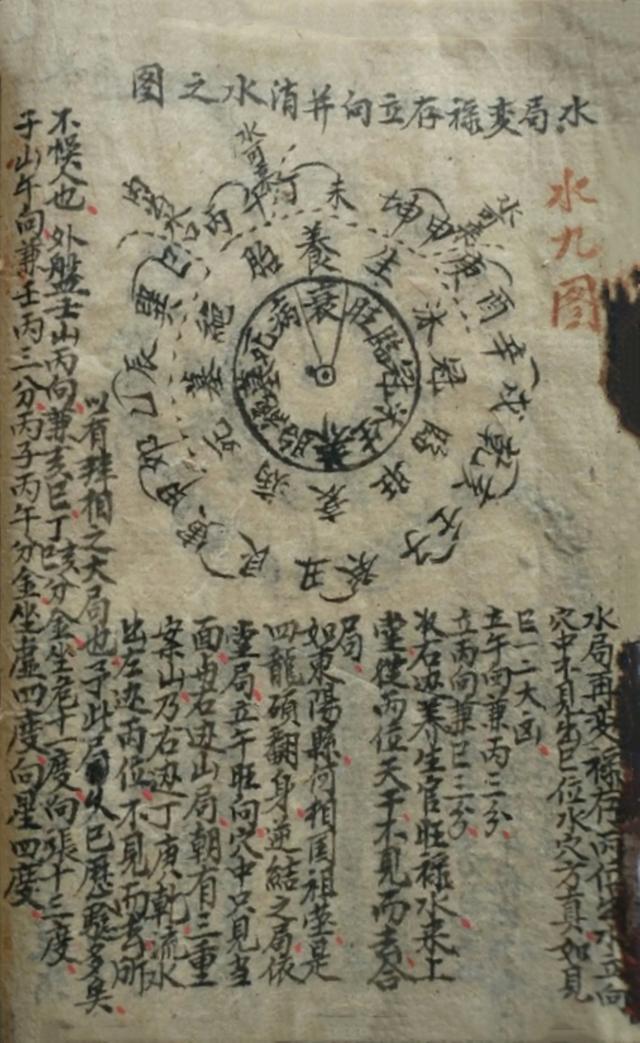 水局变禄存立向并消水之图
水九图
水局再变禄存丙位去水立向
穴中不見先巳位水穴方真如見
巳一二大凶
立午向兼丙三分
立丙向兼巳三分
收右边养生官旺禄水来上
堂從丙位天干不見而去合
局
如東陽縣何相国祖茔是
四龍頭翻身逆結之局依
堂局立午旺向穴中只見当
面与右边山局朝有三重
案山乃右边丁庚乾流水
出左边丙位不見而去所
以有拜相之大局也予此局久已歷验多矣
不悮人也外盤壬山丙向兼亥巳丁亥分金坐危十一度向張十三度
子山午向兼壬丙三分丙子丙午分金坐虚四度向星四度
未
坤申
庚
酉
辛
戌
乾亥
壬子
癸
丑
艮
寅
甲
卯
乙
辰
巽
巳
丙
午
丁
養
生
沐
冠
临
旺
衰
病
死
墓
绝
胎
衰
旺
临
冠
沐
生
养
胎
绝
墓
死
病